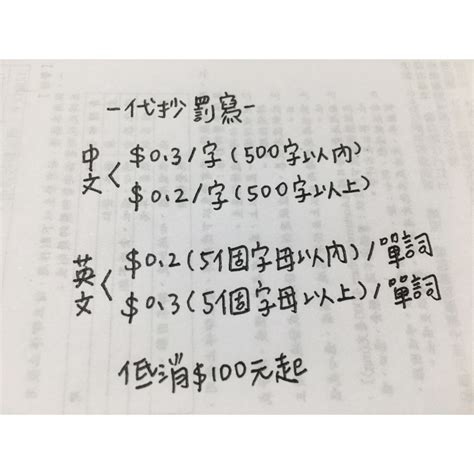 -代抄罰寫-
中文< $0.3/字(500字以內)
$0.2/字(500字以上)
英文< $0.2(5個字母以內)/單詞
$0.3(5個字母以上)/單詞
低消$100元起